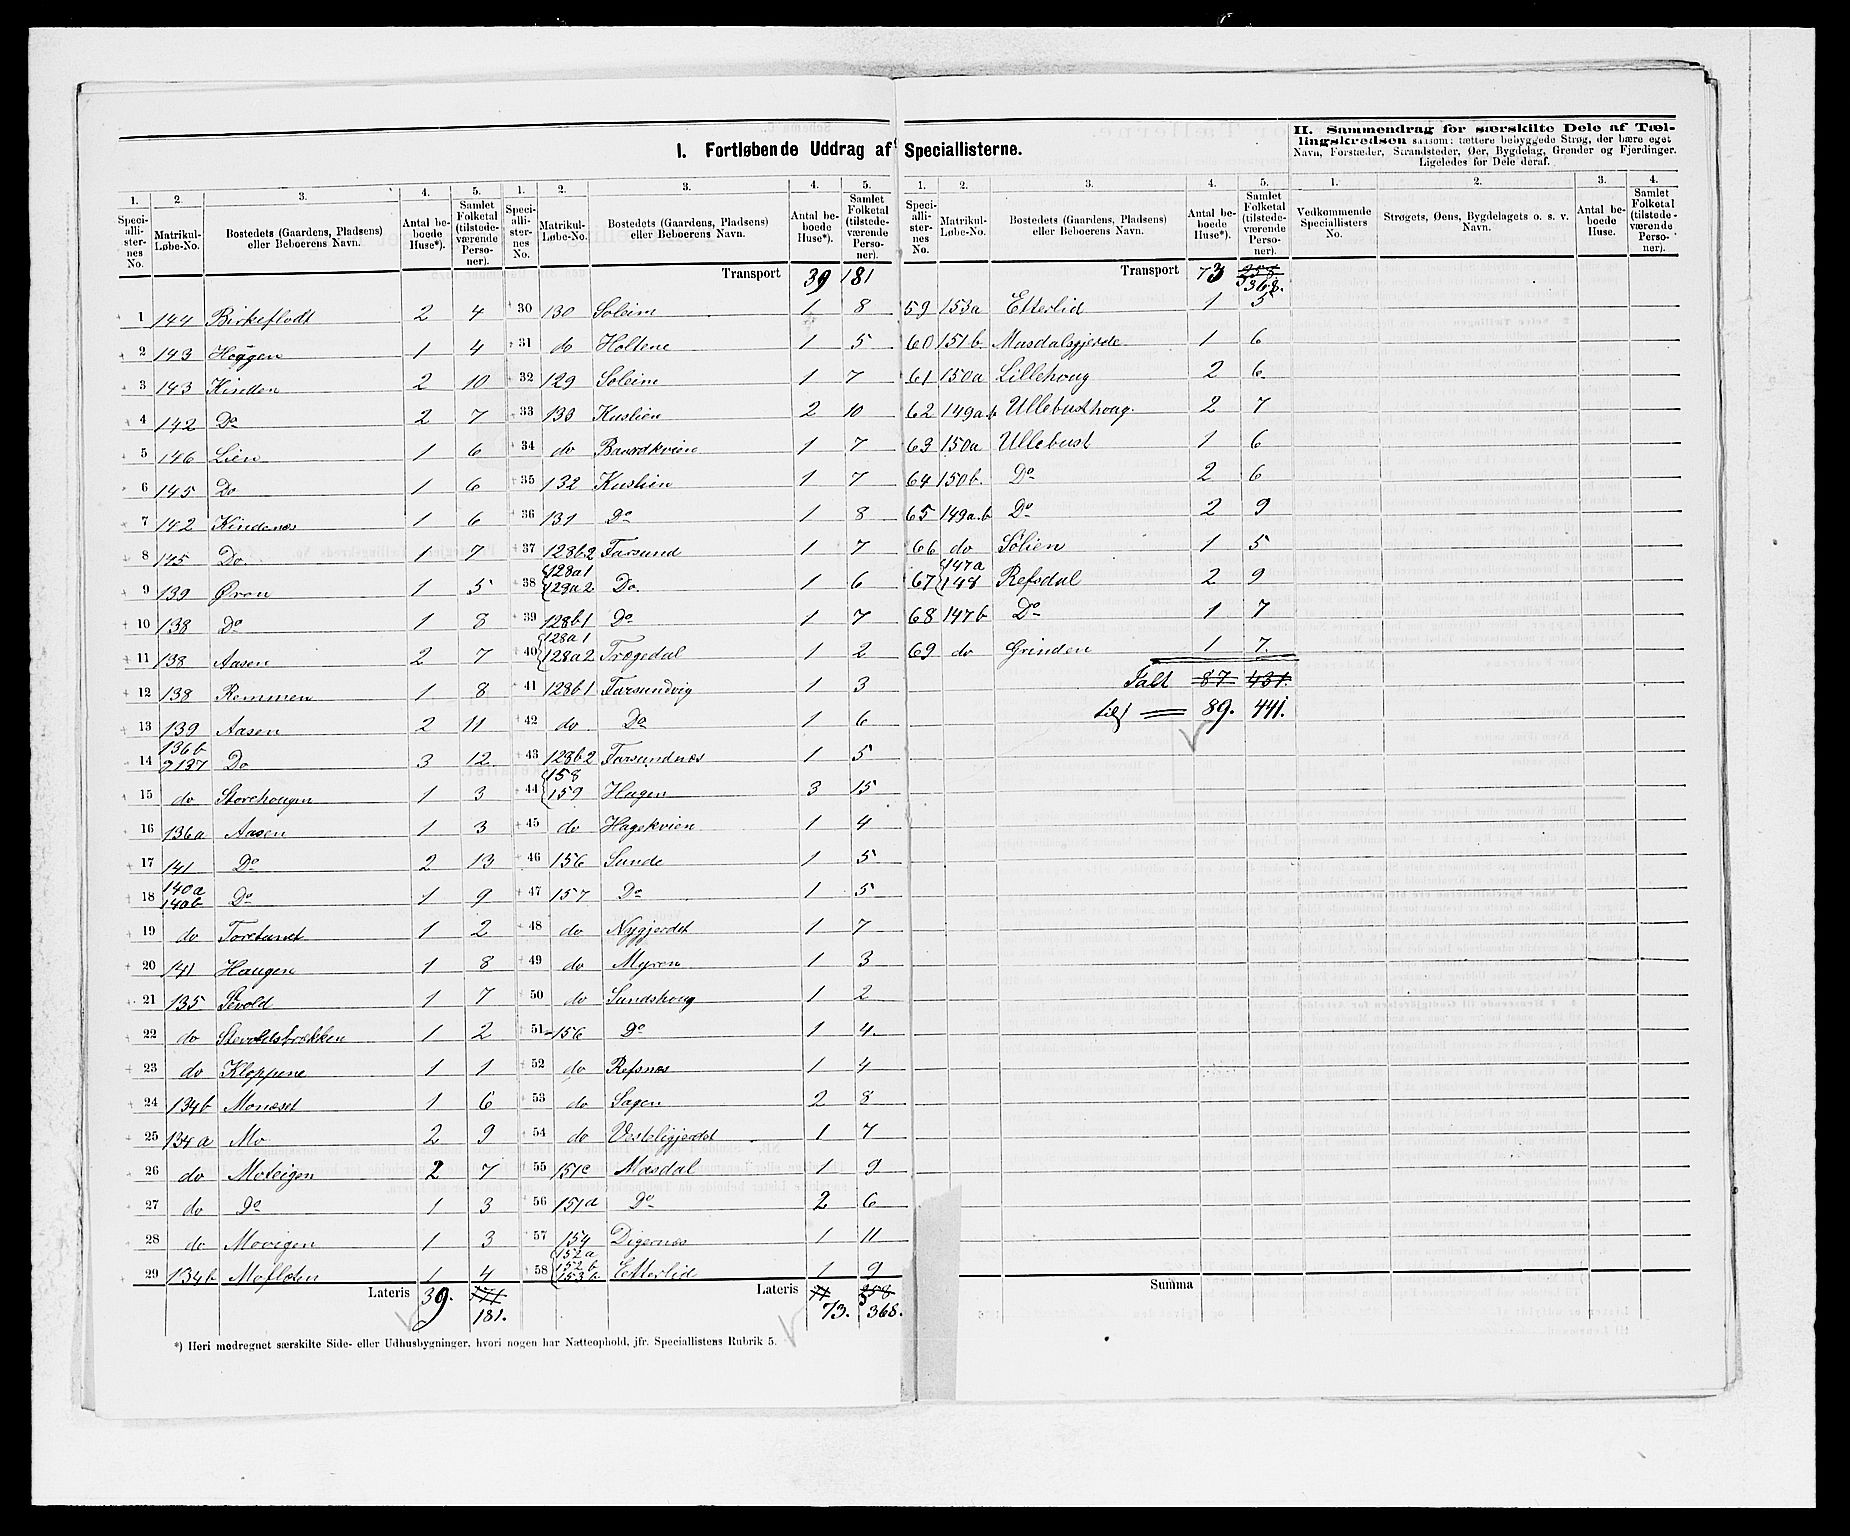 I. Fortløbende Uddrag af Speciallisterne.
II. Sammendrag for særskilte Dele af Tæl-
lingskredsen saasom: tættere bebyggede Strøg, der bære eget
Navn, Forstæder, Strandsteder, Øer, Bygdelag, Grender og Fjerdinger.
Ligeledes for Dele deraf.
1. 2. 3. 4. 5.
Speciallisternes No. Matrikul-Løbe-No. Bostedets (Gaardens, Pladsens) eller Beboerens Navn. Antal beboede Huse*). Samlet Folketal (tilstedeværende Personer).
1 144 Birkeflodt 2 4
2 143 Høggen 1 4
3 143 Kinden 2 10
4 142 Do 2 7
5 146 Lien 1 6
6 145 Do 1 6
7 142 Kindenæs 1 6
8 145 Do 1 7
9 139 Øren 1 5
10 138 Do 1 8
11 138 Aasen 2 7
12 138 Remmen 1 8
13 139 Aasen 2 11
14 136b 137 Do 3 12
15 do Storehougen 1 3
16 136a Aasen 1 3
17 141 Do 2 13
18 140a 140b Do 1 9
19 do Toretunet 1 2
20 141 Haugen 1 8
21 135 Stevold 1 7
22 do Stevoldsbrekken 1 2
23 do Kloppene 1 1
24 134b Monæset 1 6
25 134a Mo 2 9
26 do Moteigen 2 7
27 do Do 1 3
28 do Movigen 1 3
29 134b Mofloten 1 4
Lateris 39. 181.
*) Heri medregnet særskilte Side- eller Udhusbygninger, hvori nogen har Natteophold, jfr. Speciallistens Rubrik 5.
1. 2. 3. 4. 5.
Speciallisternes No. Matrikul-Løbe-No. Bostedets (Gaardens, Pladsens) eller Beboerens Navn. Antal beboede Huse*). Samlet Folketal (tilstedeværende Personer).
Transport 39 181
30 130 Soleim 1 8
31 do Holtene 1 5
32 129 Soleim 1 7
33 133 Kuslien 2 10
34 do Baardkvien 1 7
35 132 Kuslien 1 7
36 131 Do 1 8
37 128b2 Farsund 1 7
38 128a1 128a2 Do 1 6
39 128b1 Do 1 7
40 128a1 128a2 Trægedal 1 2
41 128b1 Farsundvig 1 3
42 do Do 1 6
43 128b2 Farsundnæs 1 5
44 158 159 Hagen 3 15
45 do Hagekvien 1 4
46 156 Sunde 1 5
47 157 Do 1 5
48 do Nygjerdet 1 7
49 do Myren 1 3
50 do Sundshoug 1 2
51 156 Do 1 4.
52 do Refsnæs 1 4
53 do Sagen 2 8
54 do Vesteligjerdet 1 7
55 151c Masdal 1 9
56 151d Do 2 6
57 154 Digernæs 1 11
58 152a 152b 153b Etterlid 1 9
Lateris 71 358 73. 368.
1. 2. 3. 4. 5.
Speciallisternes No. Matrikul-Løbe-No. Bostedets (Gaardens, Pladsens) eller Beboerens Navn. Antal beboede Huse*). Samlet Folketal (tilstedeværende Personer).
Transport 73 358. 368.
59 153a Etterlid 1 5
60 151b Masdalsgjerde 1 6
61 150a Lillehoug 2 6
62 149a.b Ullebusthoug. 2 7
63 150a Ullebust 1 6
64 150b. Do 2 6
65 149a.b Do 2 9
66 do Sølien 1 5
67 147a 148 Refsdal 2 9
68 147b Do 1 7
69 do Grinden 1 7.
Talt 87 431.
89. 441.
Summa
1. 2. 3. 4.
Vedkommende Speciallisters No. Strøgets, Øens, Bygdelagets o. s. v. Navn. Antal beboede Huse. Samlet Folketal (tilstedeværende Personer).